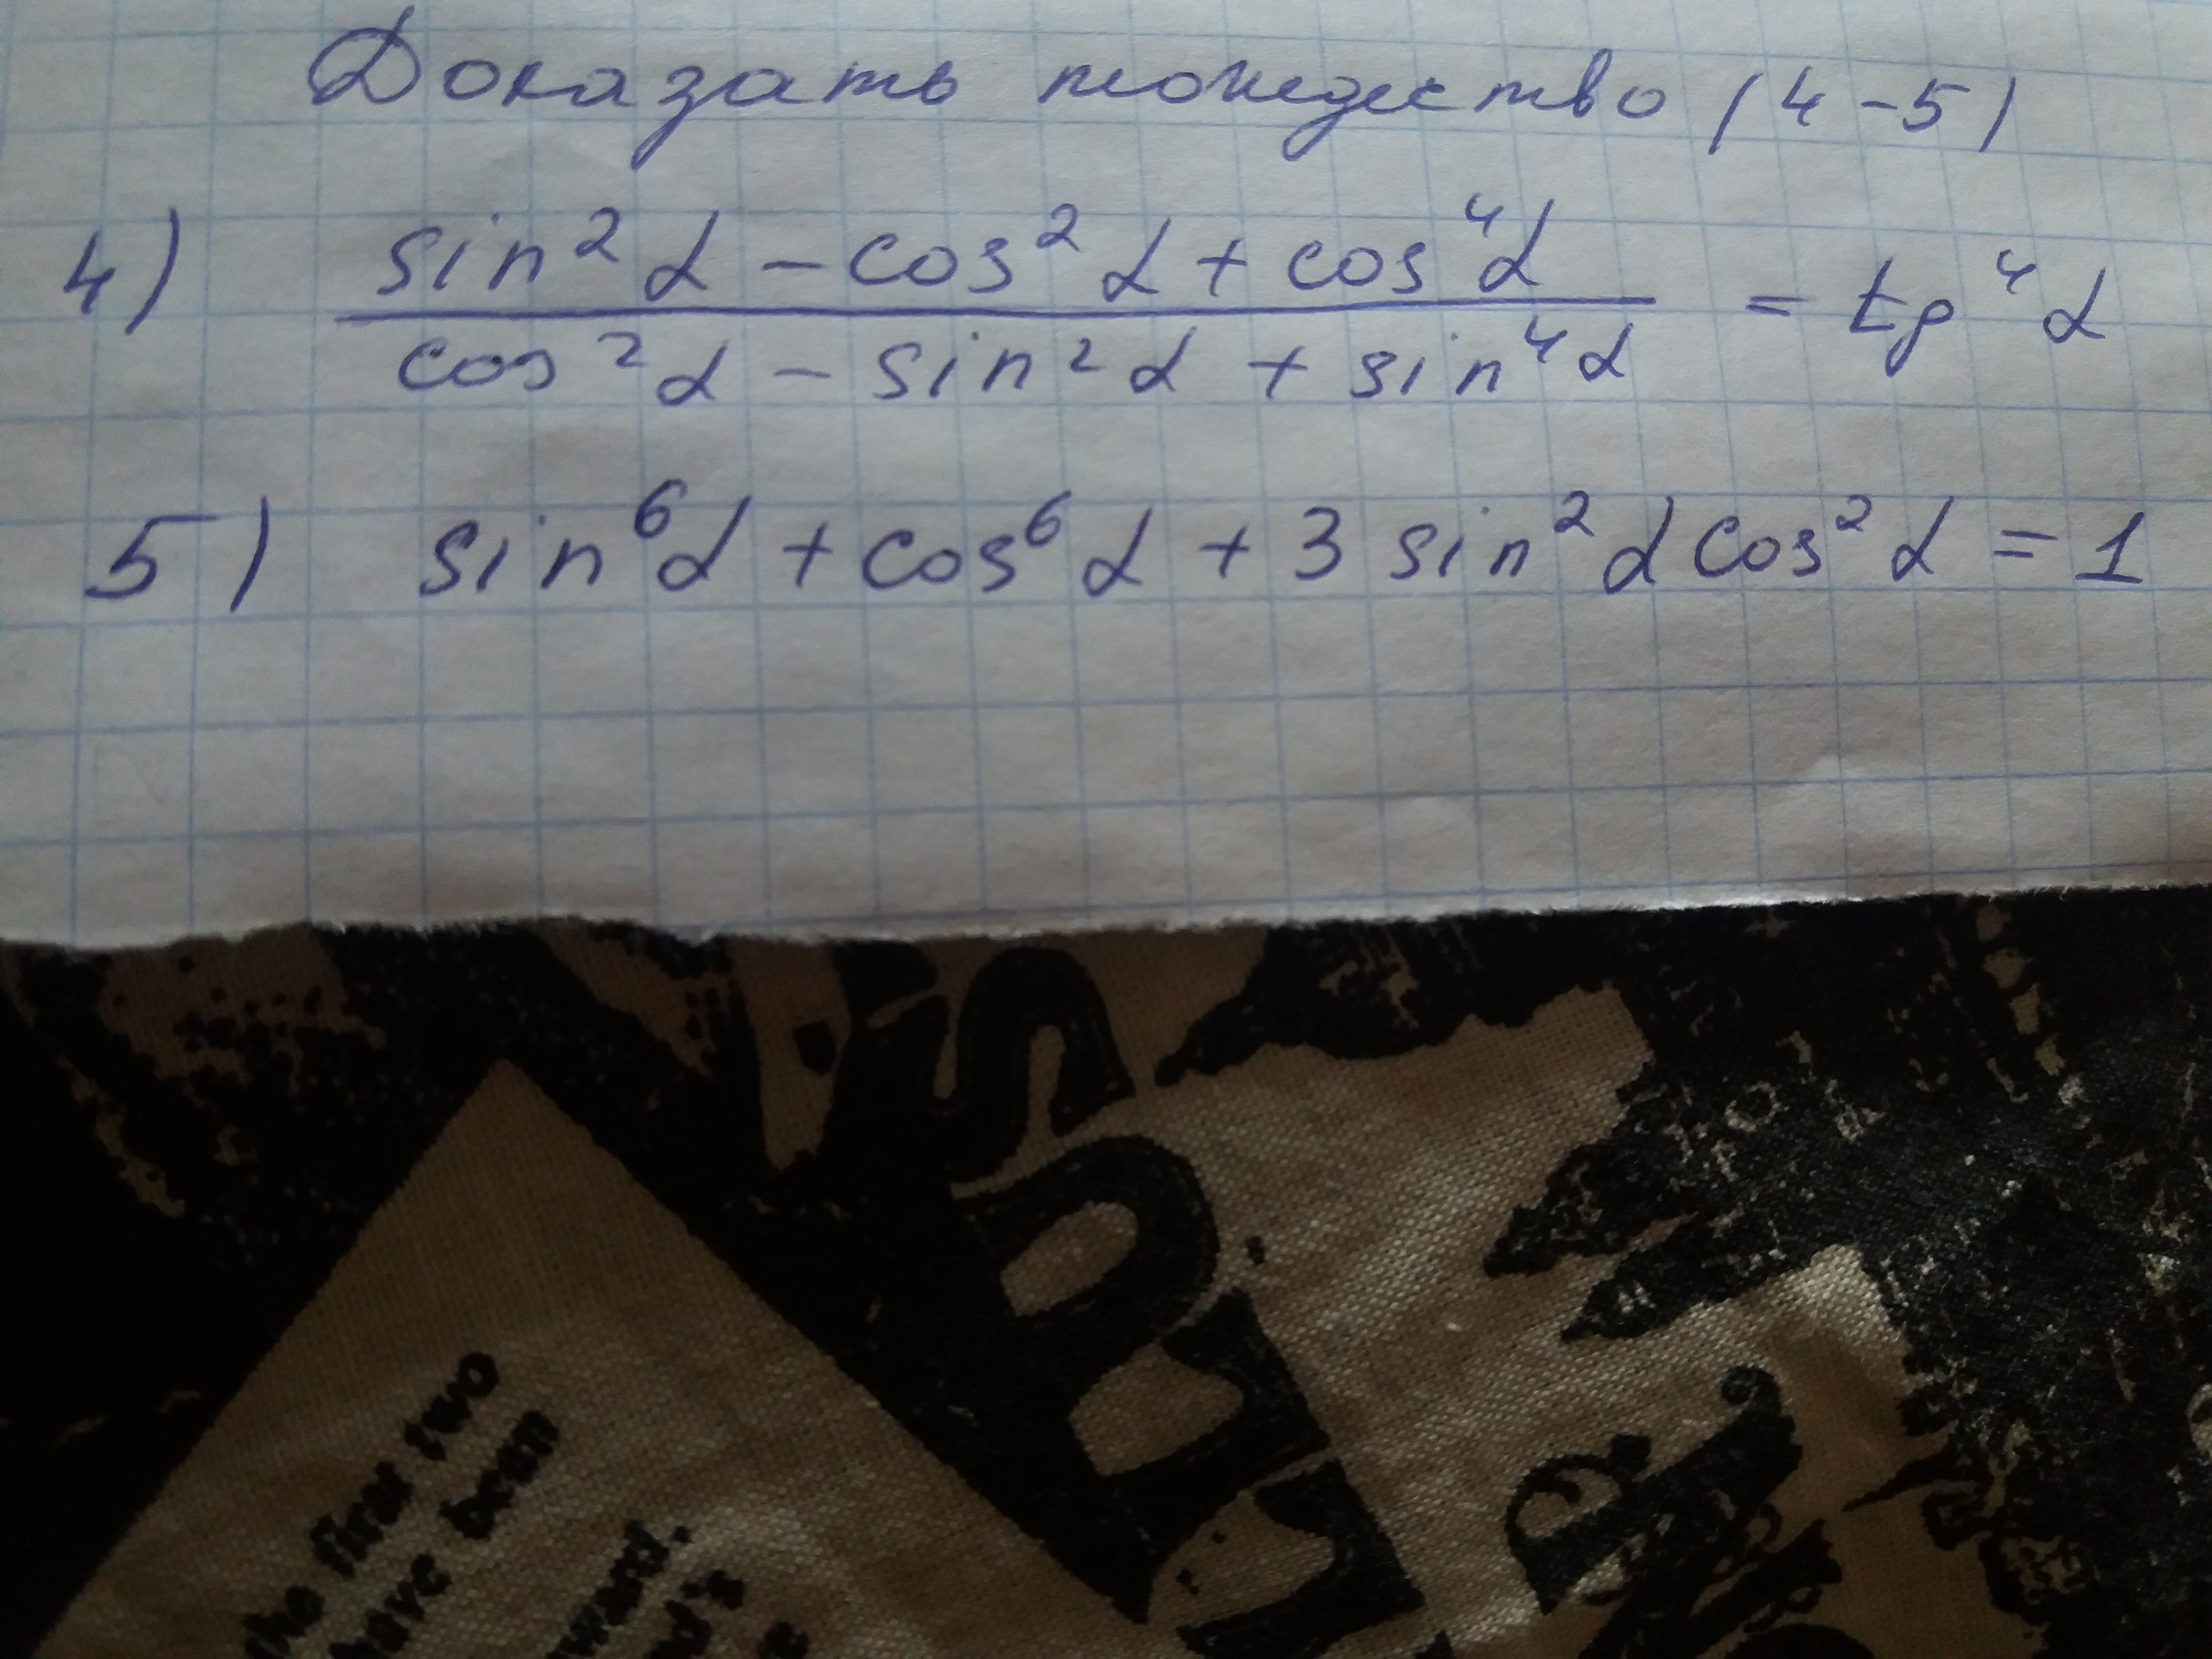 Доказать тождество (4-5)
4) sin²α - cos²α + cos⁴α / cos²α - sin²α + sin⁴α = tg⁴α
5) sin⁶α + cos⁶α + 3 sin²α cos²α = 1
the first two
have been